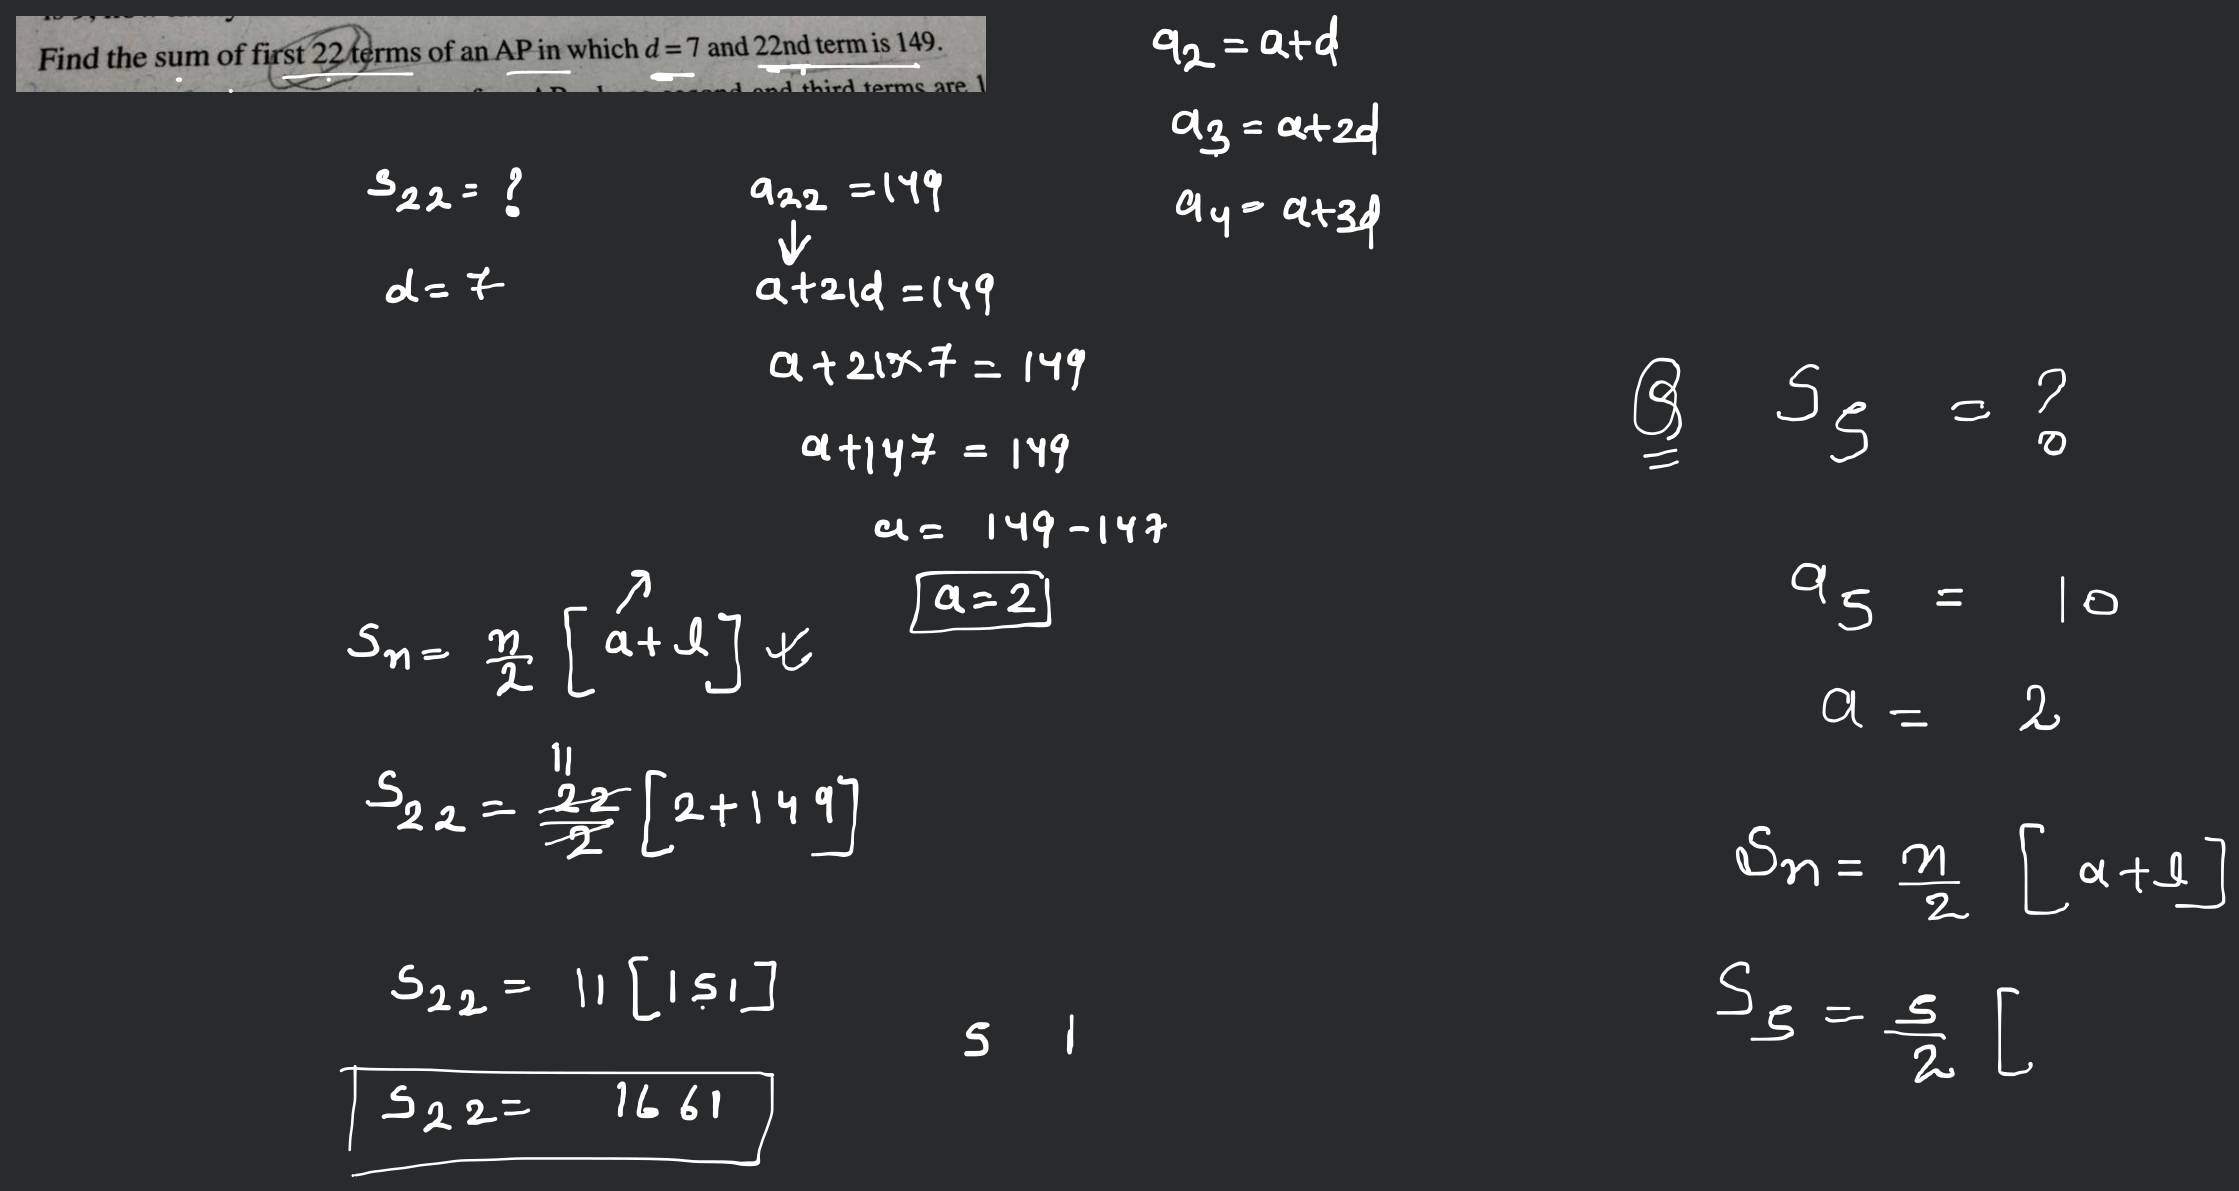 Find the sum of first 22 terms of an AP in which d = 7 and 22nd term is 149.
third terms are
S22 = ?
d = 7
a22 = 149
↓
a+21d = 149
a+21×7 = 149
a+147 = 149
a = 149-147
a=2
a2 = a+d
a3 = a+2d
a4 = a+3d
Sn = n/2 [a+l]
S22 = 22/2 [2+149]
11
S22 = 11[151]
S22 = 1661
5 1
Q S5 = ?
a5 = 10
a = 2
Sn = n/2 [a+l]
S5 = 5/2 [